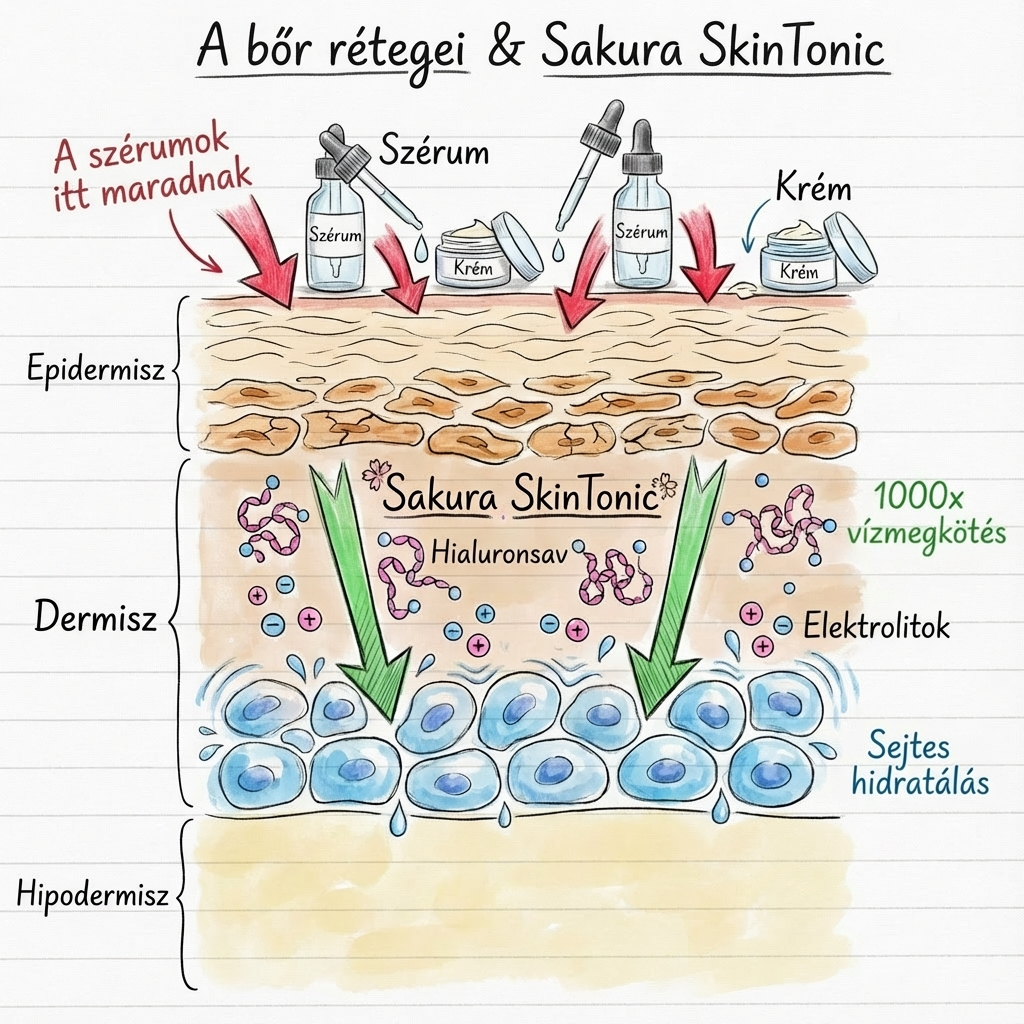 A bőr rétegei & Sakura SkinTonic
A szérumok
itt maradnak
Szérum
Krém
Szérum
Krém
Szérum
Krém
Epidermisz
Sakura SkinTonic
Hialuronsav
1000x
vízmegkötés
Dermisz
Elektrolitok
Sejtes
hidratálás
Hipodermisz